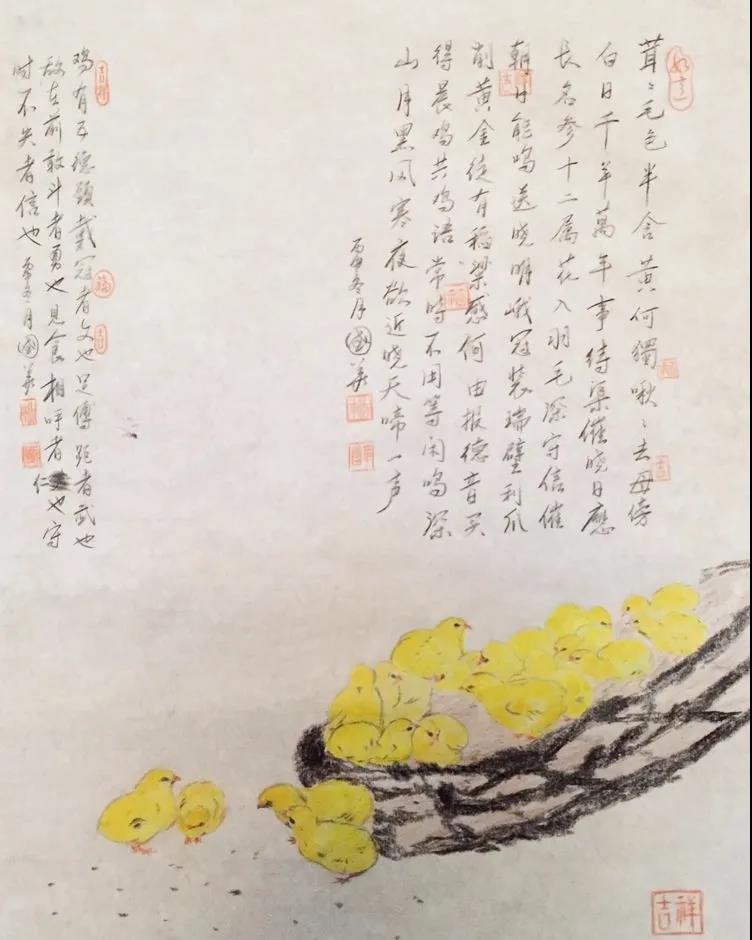 如意
茸〻毛色半含黄何獨啾〻去母傍
白日千年萬年事待渠催晓日應
长名参十二属花入羽毛深守信催
朝日能鸣送晓明峨冠装瑞璧利爪
削黄金徒有稻粱感何由报德音买
得晨鸡共鸡语常時不用等闲鸣深
山月黑风寒夜欲近晓天啼一声
丙申冬月國華
吉祥
鸡有五德頭戴冠者文也足傅距者武也
敌在前敢斗者勇也見食相呼者仁也守
时不失者信也丙申冬月國華
福
吉
福
吉
吉祥